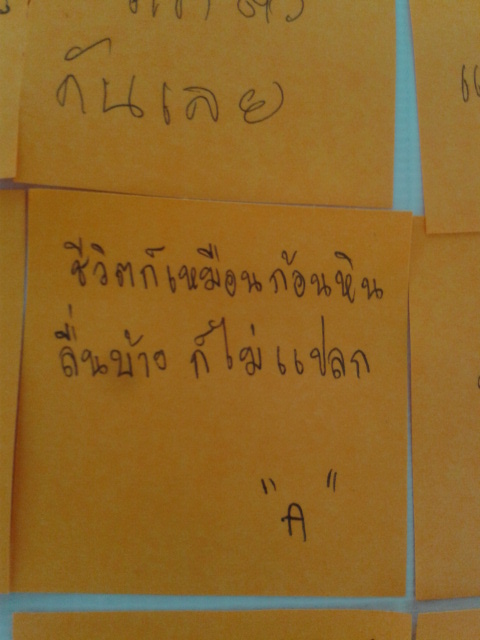 กันเลย
ชีวิตก็เหมือนก้อนหิน
ลื่นบ้าง ก็ไม่แปลก
"A"